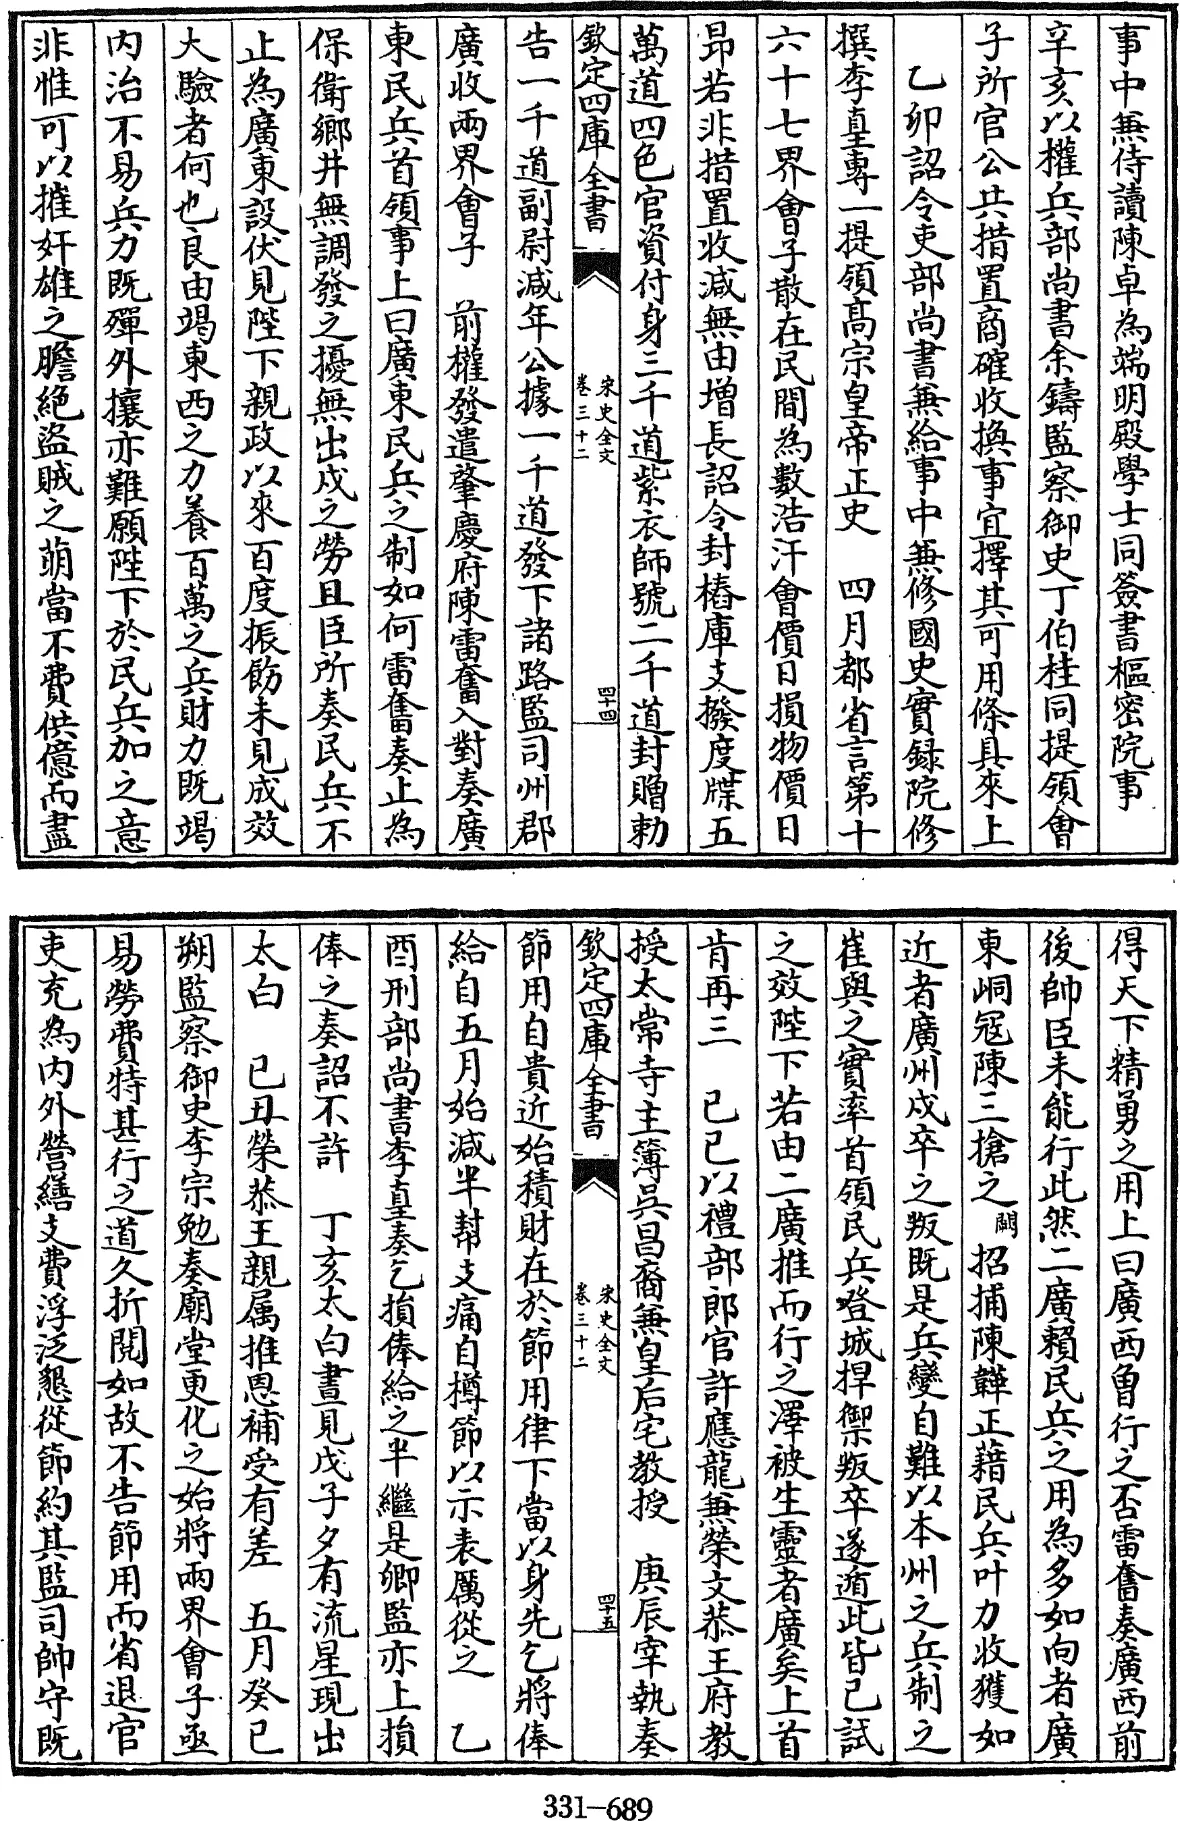 事中兼侍讀陳卓為端明殿學士同簽書樞密院事
辛亥以權兵部尚書余鑄監察御史丁伯桂同提領會
子所官公共措置商確收換事宜擇其可用條具來上
乙卯詔令吏部尚書兼給事中兼修國史實録院修
撰李𡌴專一提領高宗皇帝正史　四月都省言第十
六十七界會子散在民間為數浩汗會價日損物價日
昂若非措置收減無由增長詔令封樁庫支撥度牒五
萬道四色官資付身三千道紫衣師號二千道封贈勅
欽定四庫全書
宋史全文
卷三十二
四十四
告一千道副尉減年公據一千道發下諸路監司州郡
廣收兩界會子　前權發遣肇慶府陳雷奮入對奏廣
東民兵首領事上曰廣東民兵之制如何雷奮奏止為
保衛鄉井無調發之擾無出戍之勞且臣所奏民兵不
止為廣東設伏見陛下親政以來百度振飭未見成效
大驗者何也良由竭東西之力養百萬之兵財力既竭
内治不易兵力既殫外攘亦難願陛下於民兵加之意
非惟可以摧奸雄之膽絶盜賊之萌當不費供億而盡
得天下精勇之用上曰廣西曾行之否雷奮奏廣西前
後帥臣未能行此然二廣賴民兵之用為多如向者廣
東峒冦陳三搶之闕招捕陳韡正藉民兵叶力收獲如
近者廣州戍卒之叛既是兵變自難以本州之兵制之
崔與之實率首領民兵登城捍禦叛卒遂遁此皆已試
之效陛下若由二廣推而行之澤被生靈者廣矣上首
肯再三　己巳以禮部郎官許應龍兼榮文恭王府教
授太常寺主簿吳昌裔兼皇后宅教授　庚辰宰執奏
欽定四庫全書
宋史全文
卷三十二
四十五
節用自貴近始積財在於節用律下當以身先乞將俸
給自五月始減半幇支痛自撙節以示表厲從之　乙
酉刑部尚書李𡌴奏乞損俸給之半繼是卿監亦上損
俸之奏詔不許　丁亥太白晝見戊子夕有流星現出
太白　己丑榮恭王親属推恩補受有差　五月癸巳
朔監察御史李宗勉奏廟堂更化之始將兩界會子亟
易勞費特甚行之道久折閱如故不告節用而省退官
吏充為内外營繕支費浮泛懇從節約其監司帥守既
331-689